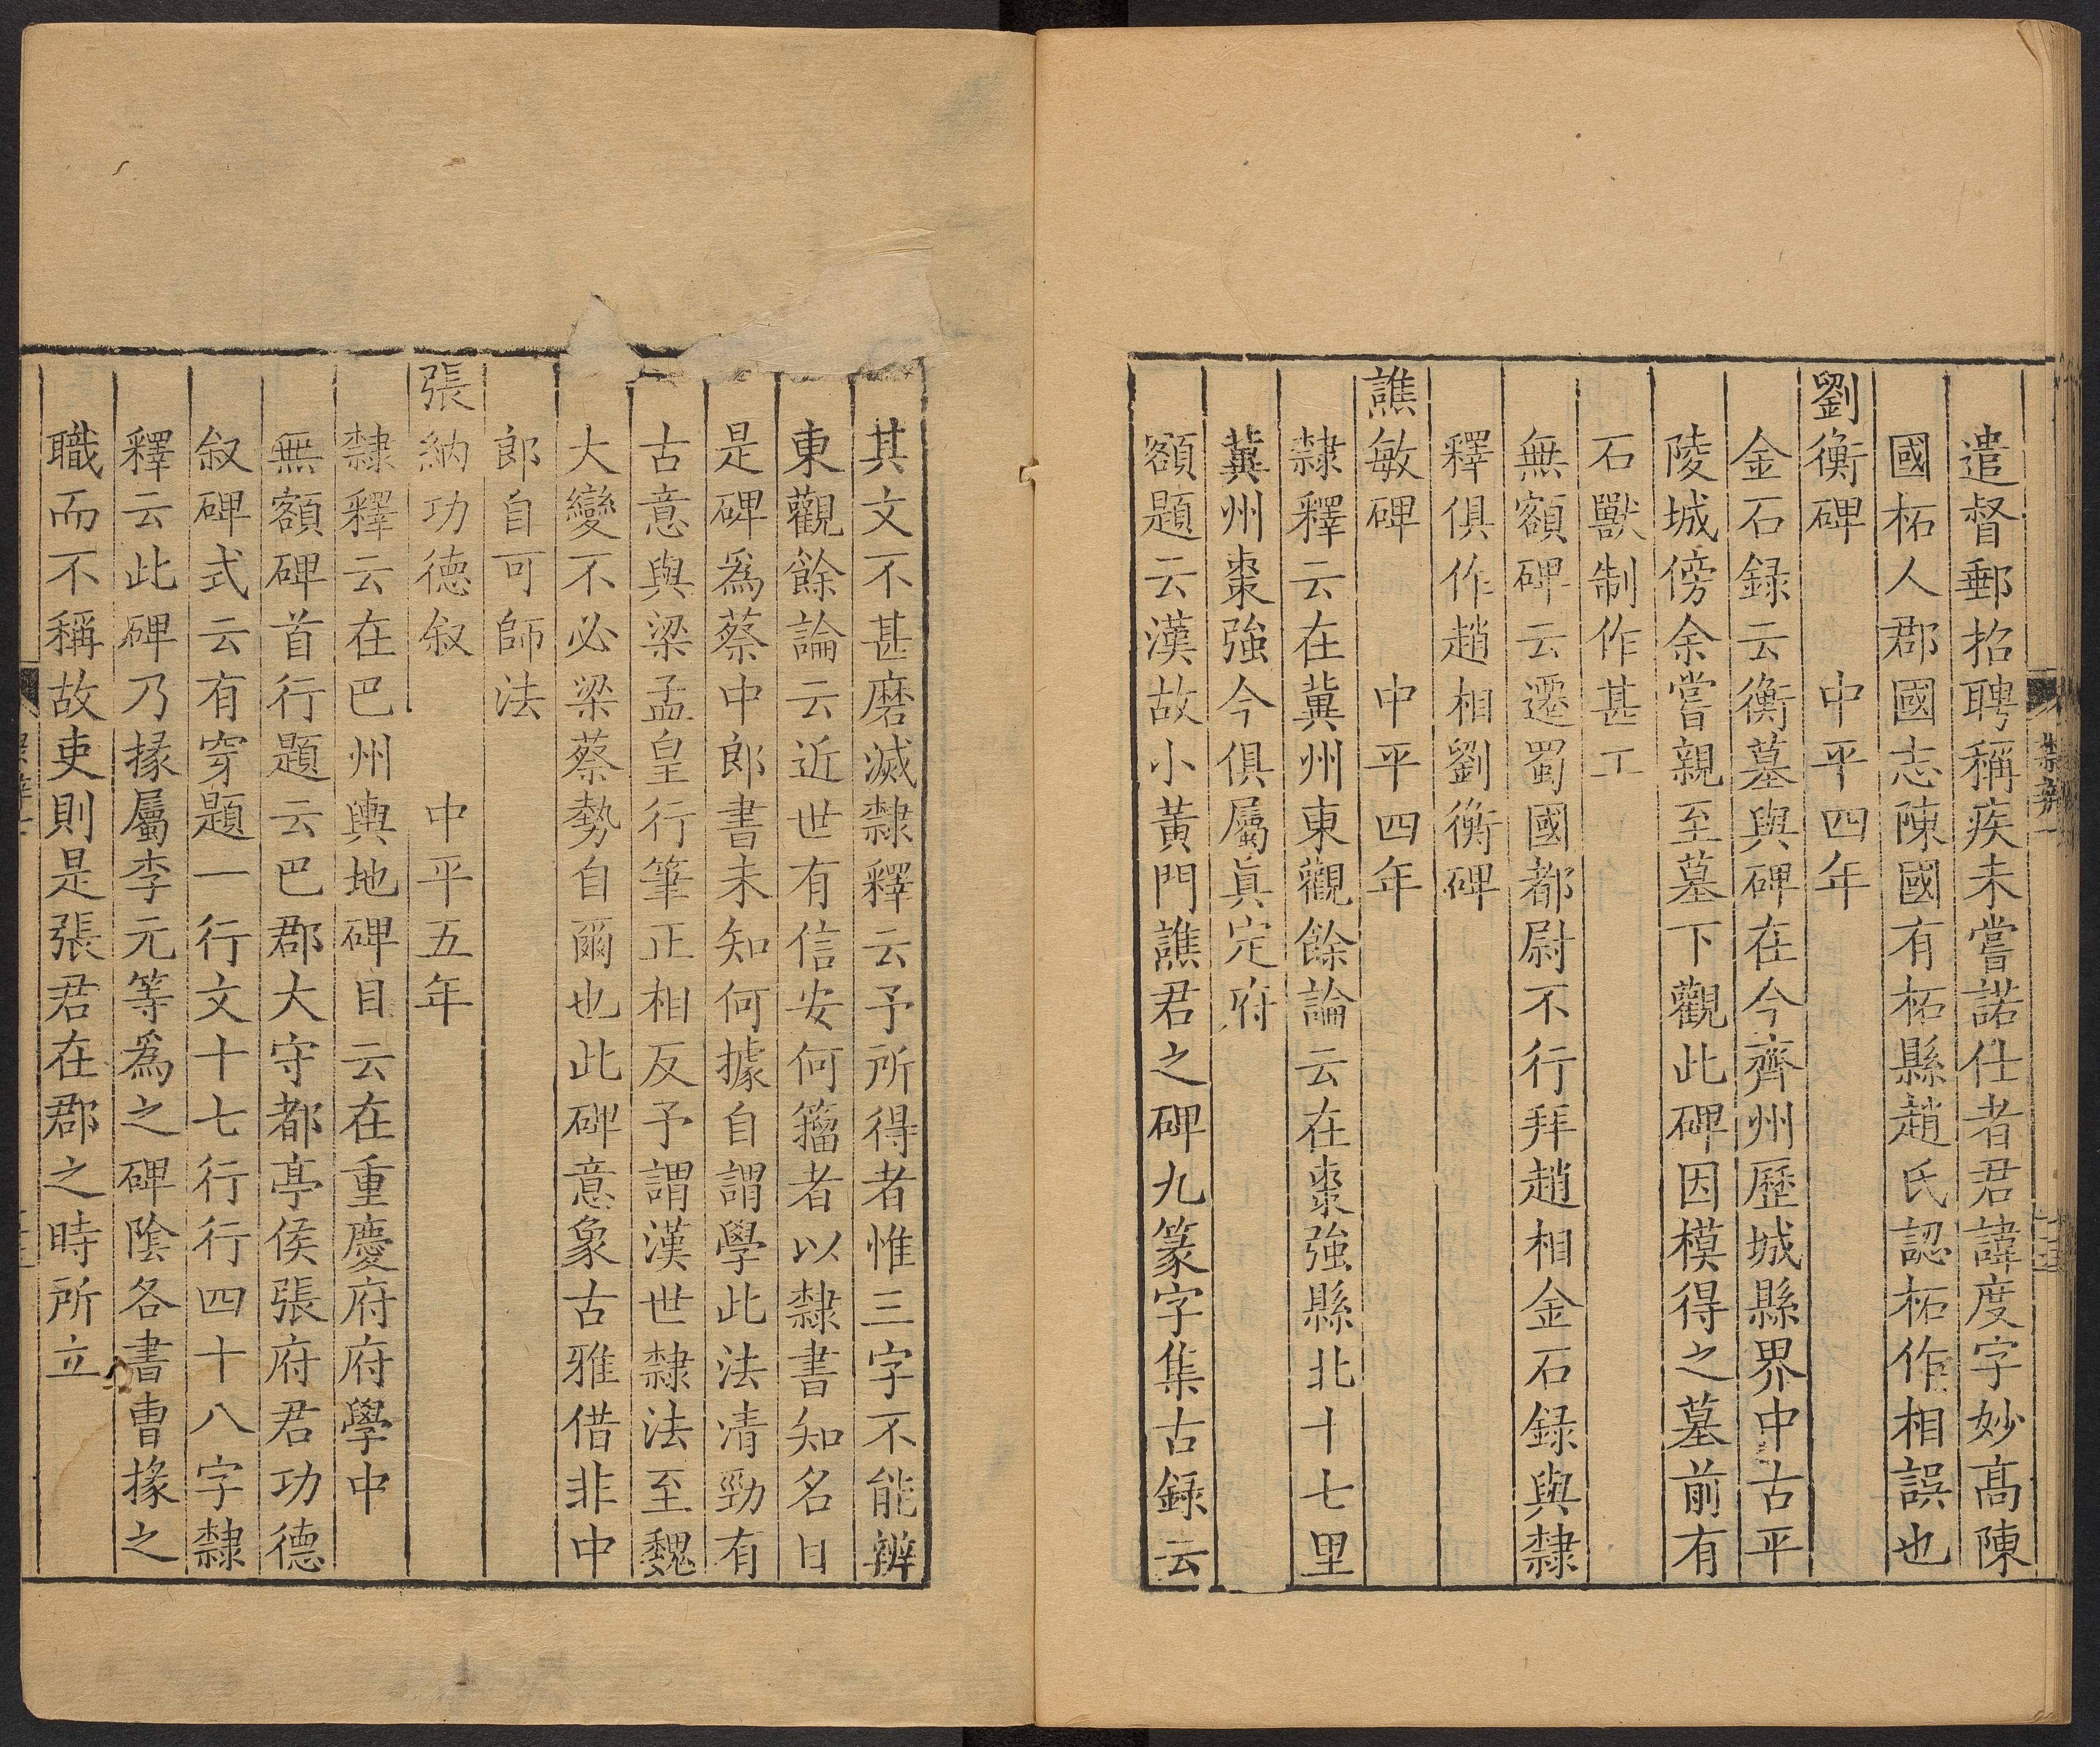 遣督郵招聘稱疾未嘗諾仕者君諱度字妙高陳
國柘人郡國志陳國有柘縣趙氏認柘作相誤也
劉衡碑　中平四年
金石録云衡墓與碑在今齊州歷城縣界中古平
陵城傍余嘗親至墓下觀此碑因模得之墓前有
石獸制作甚工
無額碑云遷蜀國都尉不行拜趙相金石録與隸
釋俱作趙相劉衡碑
譙敏碑　中平四年
隸釋云在冀州東觀餘論云在棗強縣北十七里
冀州棗強今俱屬眞定府
額題云漢故小黃門譙君之碑九篆字集古録云
其文不甚磨滅隸釋云予所得者惟三字不能辨
東觀餘論云近世有信安何籀者以隸書知名曰
是碑爲蔡中郎書未知何據自謂學此法清勁有
古意與梁孟皇行筆正相反予謂漢世隸法至魏
大變不必梁蔡勢自爾也此碑意象古雅借非中
郎自可師法
張納功德叙　中平五年
隸釋云在巴州輿地碑目云在重慶府府學中
無額碑首行題云巴郡大守都亭侯張府君功德
叙碑式云有穿題一行文十七行行四十八字隸
釋云此碑乃掾屬李元等爲之碑陰各書曹掾之
職而不稱故吏則是張君在郡之時所立